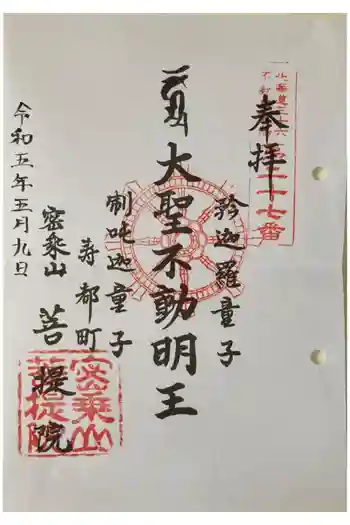 北海道三十六
不
第二十七番
奉拝
矜迦羅童子
大聖不動明王
制吒迦童子
寿都町
密乗山
菩提院
令和五年五月九日
密乗山
菩提院